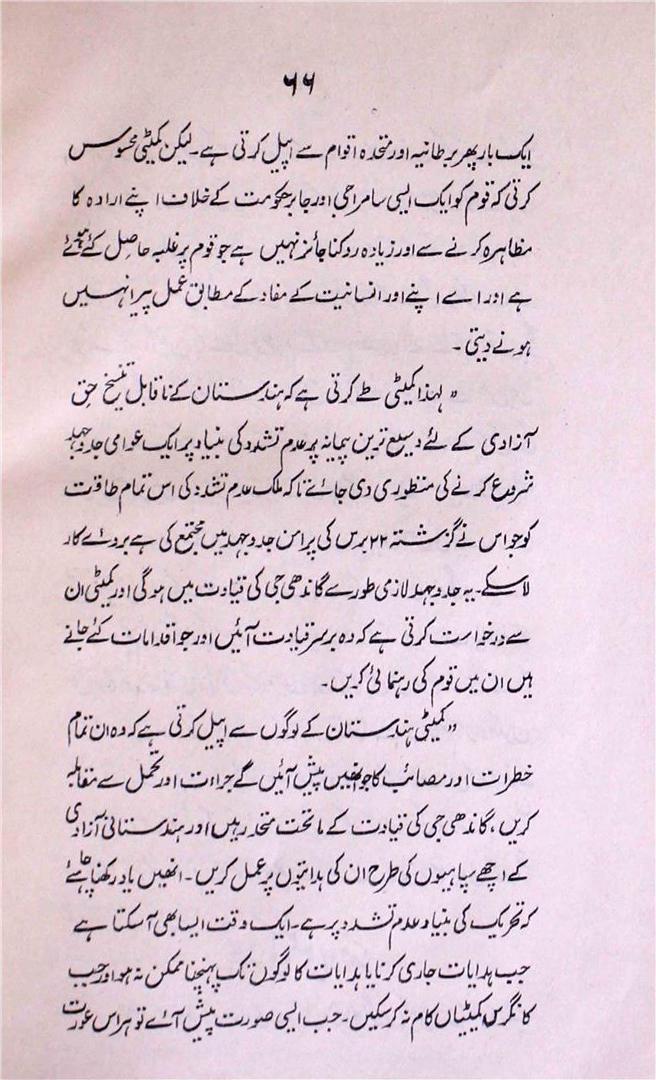 ۶۶
ایک بار پھر برطانیہ اور متحدہ اقوام سے اپیل کرتی ہے۔ لیکن کمیٹی محسوس
کرتی کہ قوم کو ایک ایسی سامراجی اور جابر حکومت کے خلاف اپنے ارادہ کا
مظاہرہ کرنے سے اور زیادہ روکنا جائز نہیں ہے جو قوم پر غلبہ حاصل کئے ہوئے
ہے اور اسے اپنے اور انسانیت کے مفاد کے مطابق عمل پیرا نہیں
ہونے دیتی۔
”لہذا کمیٹی طے کرتی ہے کہ ہندستان کے ناقابل تنسیخ حق
آزادی کے لئے وسیع ترین پیمانہ پر عدم تشدد کی بنیاد پر ایک عوامی جدوجہد
شروع کرنے کی منظوری دی جائے تاکہ ملک عدم تشدد کی اس تمام طاقت
کو جو اس نے گزشتہ ۲۲ برس کی پرامن جدوجہد میں مجتمع کی ہے بروئے کار
لاسکے۔ یہ جدوجہد لازمی طور سے گاندھی جی کی قیادت میں ہوگی اور کمیٹی ان
سے درخواست کرتی ہے کہ وہ برسر قیادت آئیں اور جو اقدامات کئے جانے
ہیں ان میں قوم کی رہنمائی کریں۔
”کمیٹی ہندستان کے لوگوں سے اپیل کرتی ہے کہ وہ ان تمام
خطرات اور مصائب کا جو انھیں پیش آئیں گے جراءت اور تحمل سے مقابلہ
کریں، گاندھی جی کی قیادت کے ماتحت متحد رہیں اور ہندستانی آزادی
کے اچھے سپاہیوں کی طرح ان کی ہدایتوں پر عمل کریں۔ انھیں یاد رکھنا چاہئے
کہ تحریک کی بنیاد عدم تشدد پر ہے۔ ایک وقت ایسا بھی آسکتا ہے
جب ہدایات جاری کرنا یا ہدایات کا لوگوں تک پہنچنا ممکن نہ ہو اور جب
کانگرس کمیٹیاں کام نہ کرسکیں۔ جب ایسی صورت پیش آئے تو ہر اس عورت